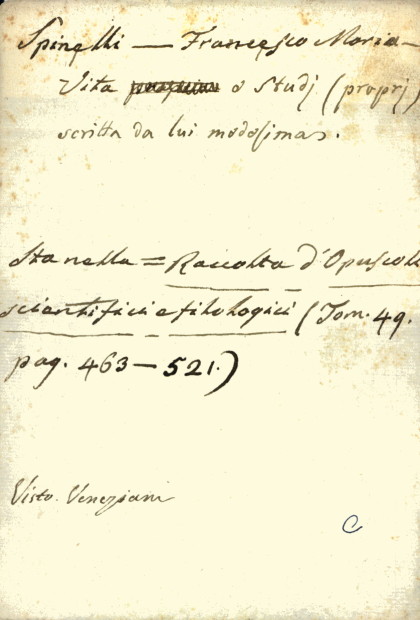 Spinelli — Francesco Maria —
Vita e Studj (proprj)
scritta da lui medesimas.
Sta nella = Raccolta d'Opuscoli
scientifici e filologici (Tom. 49.
pag. 463 — 521.)
Visto. Veneziani
C